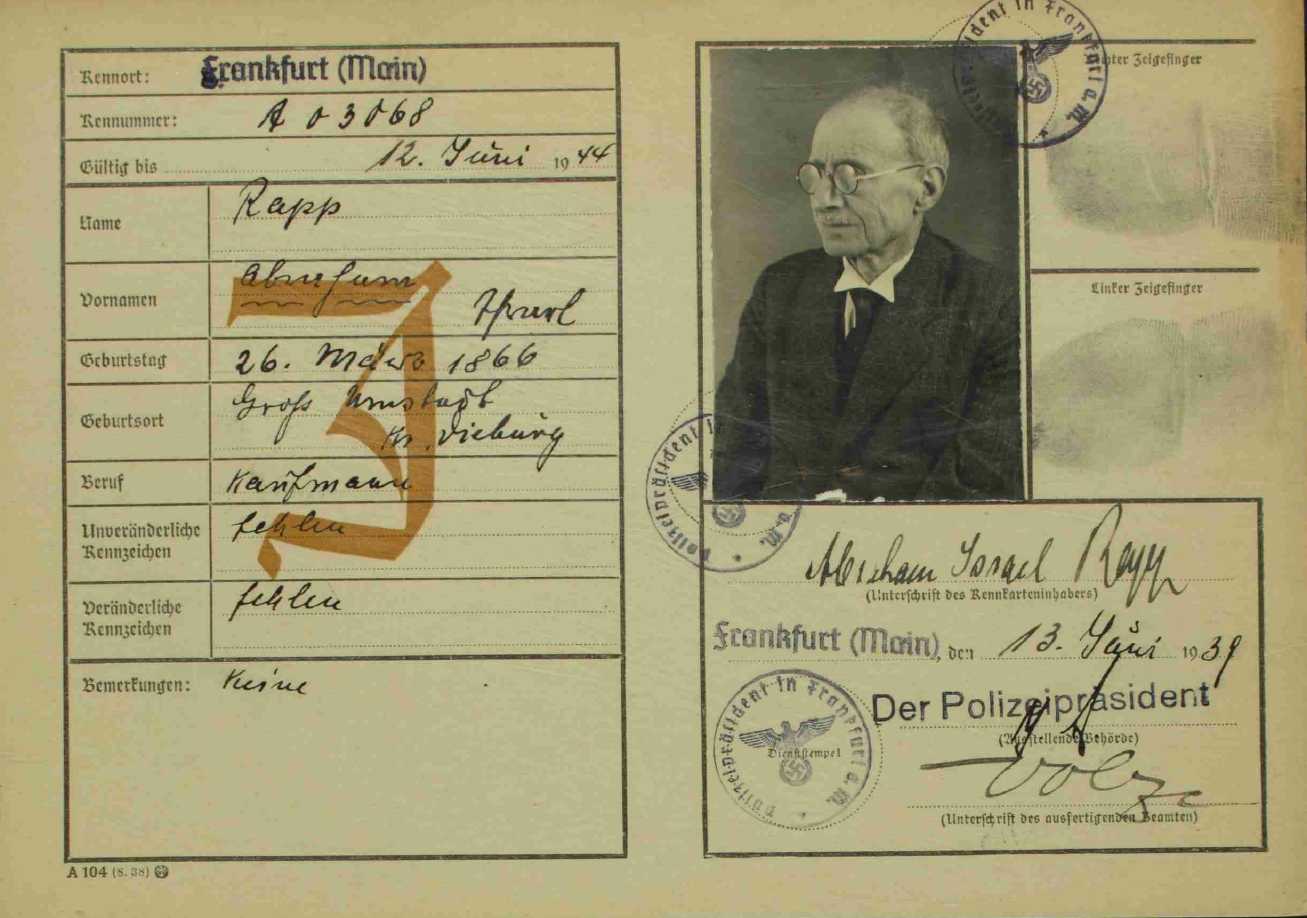 Kennort: Frankfurt (Main)
Kennummer: A 03068
Gültig bis 12. Juni 1944
Name Rapp
Vornamen Abraham
Israel
Geburtstag 26. März 1866
Geburtsort Groß Umstadt
Kr. Dieburg
Beruf Kaufmann
Unveränderliche Kennzeichen fehlen
Veränderliche Kennzeichen fehlen
Bemerkungen: Keine
J
A 104 (8. 38)
Rechter Zeigefinger
Linker Zeigefinger
Polizeipräsident in Frankfurt a. M.
Polizeipräsident in Frankfurt a. M.
Abraham Israel Rapp
(Unterschrift des Kennkarteninhabers)
Frankfurt (Main), den 13. Juni 1939
Der Polizeipräsident
(Ausstellende Behörde)
Polizeipräsident in Frankfurt a. M.
Dienststempel
(Unterschrift des ausfertigenden Beamten)